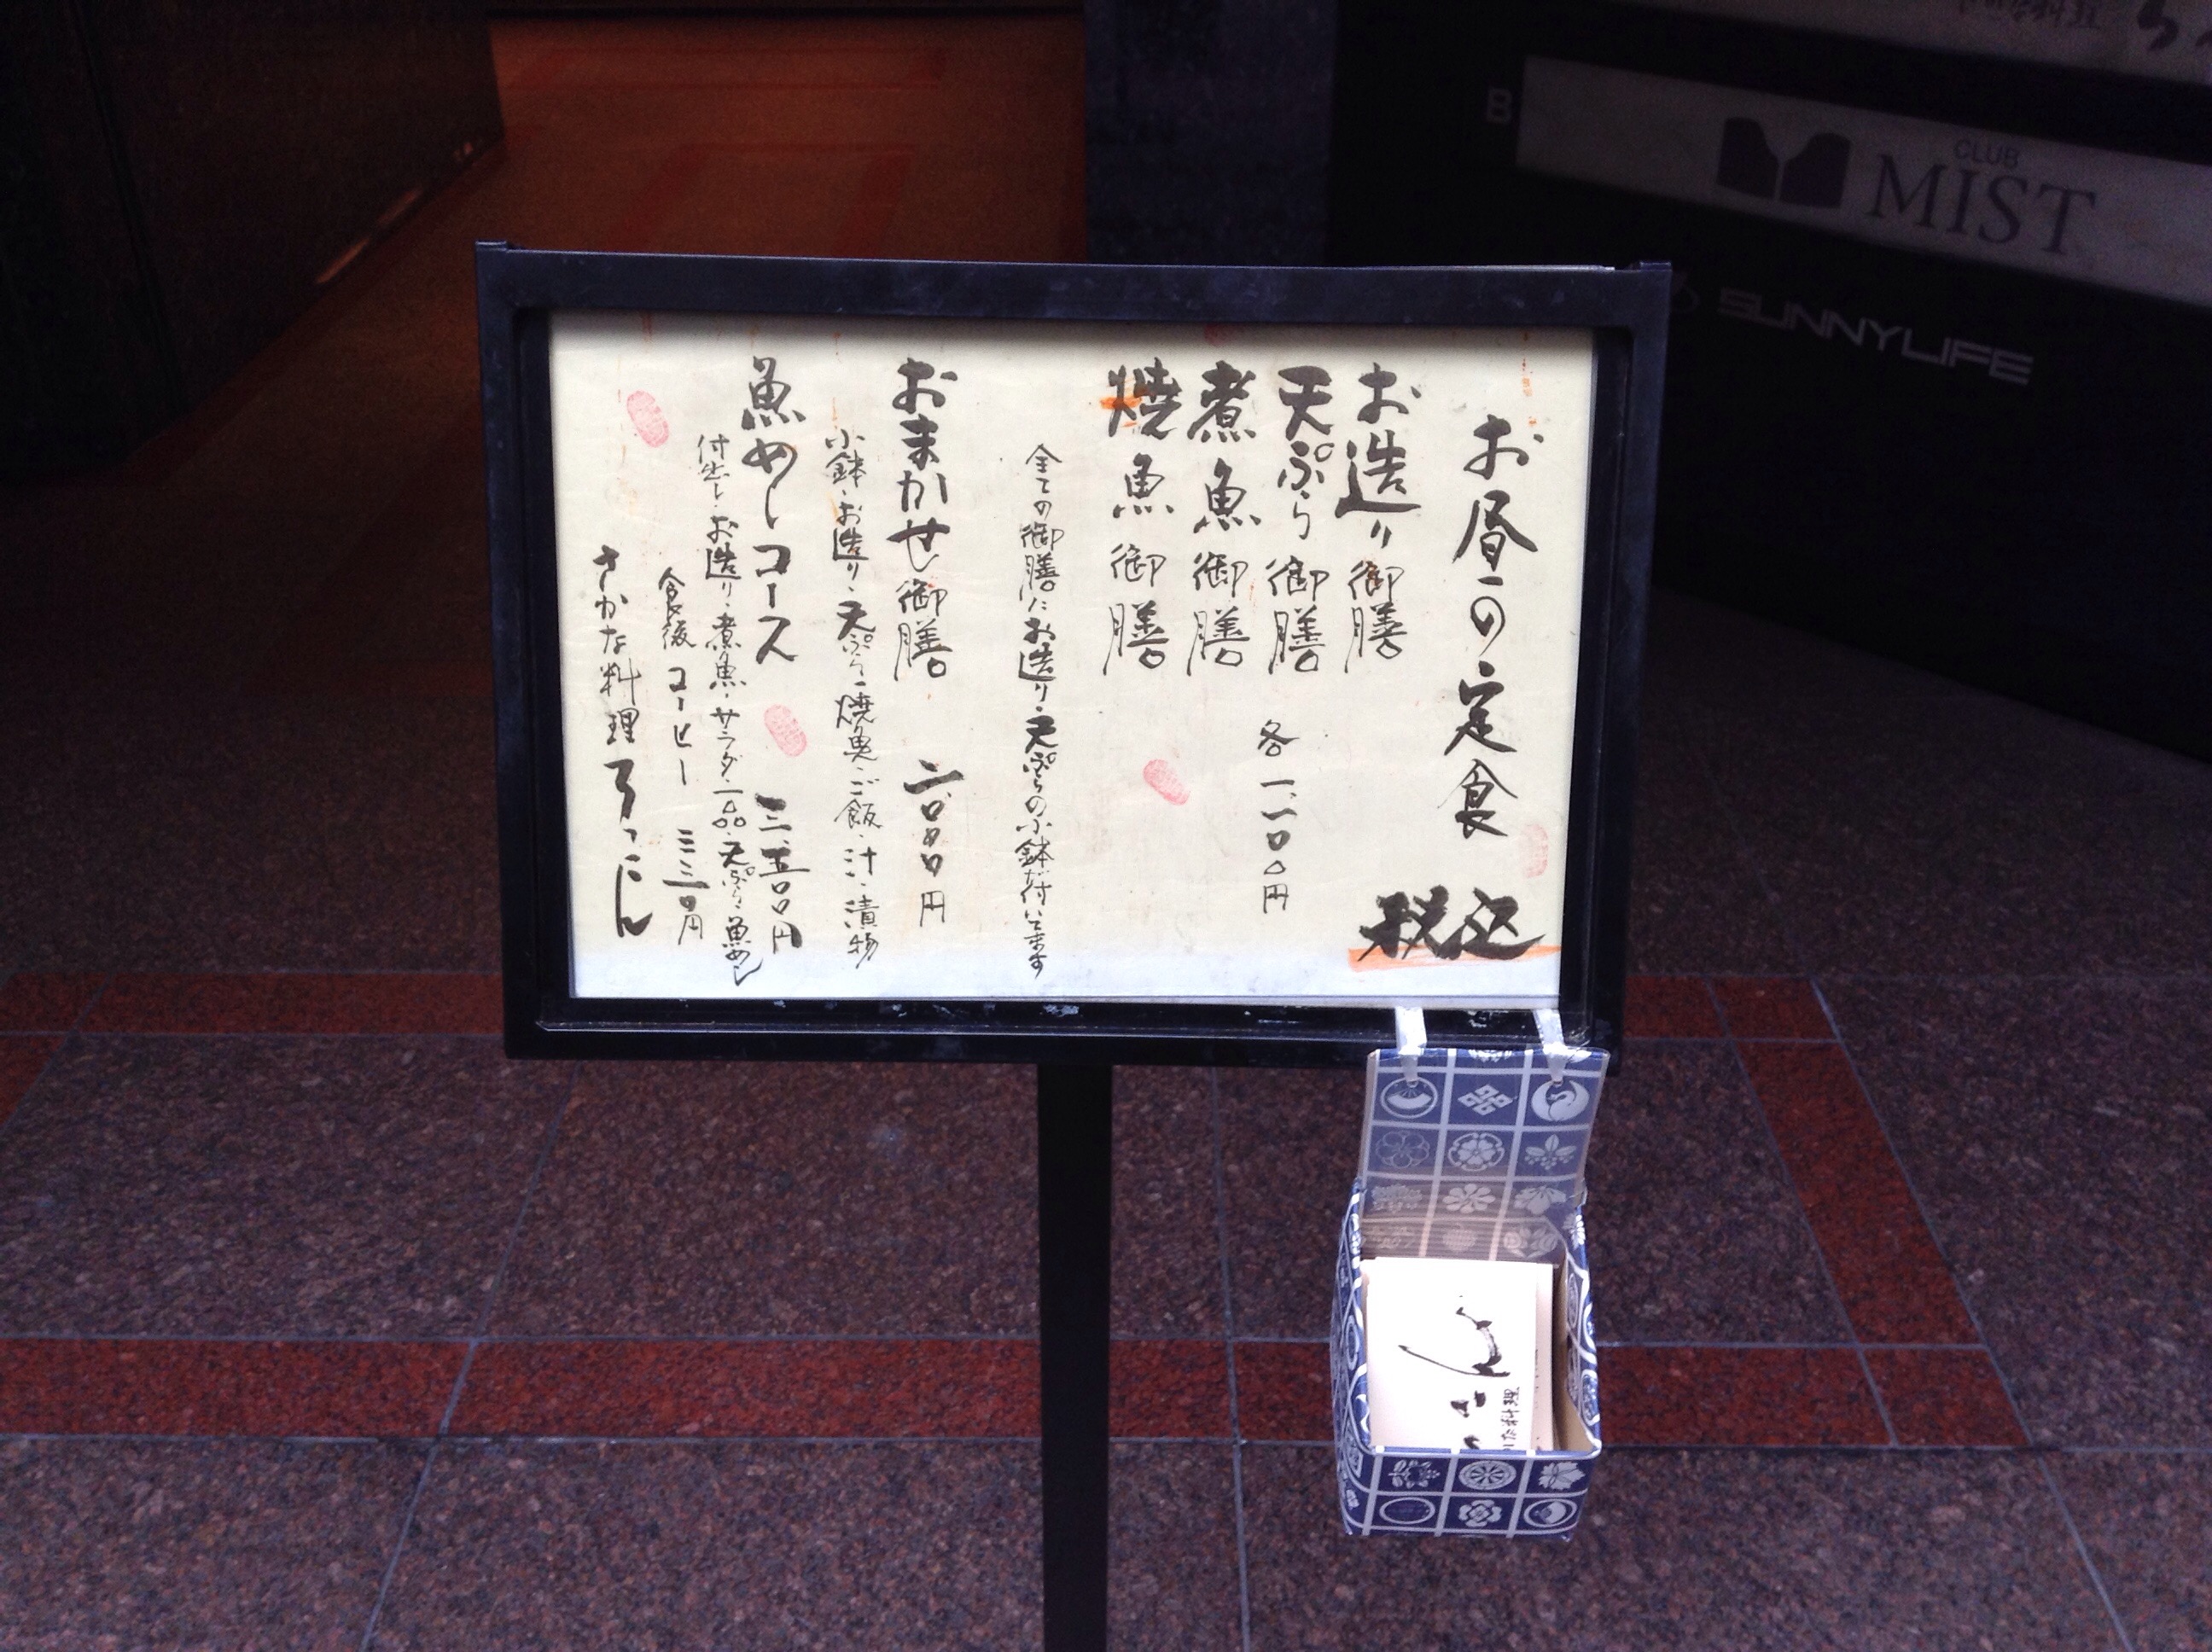 お昼の定食
税込
お造り御膳
天ぷら御膳
煮魚御膳
焼魚御膳
各一、一〇〇円
全ての御膳にお造り・天ぷらの小鉢が付いてます
おまかせ御膳 二、〇〇〇円
小鉢・お造り・天ぷら・焼魚・ご飯・汁・漬物
魚めしコース 三、五〇〇円
付出し・お造り・煮魚・サラダ・一品・天ぷら・魚めし
食後 コーヒー 三三〇円
さかな料理
CLUB
MIST
SUNNYLIFE
B
料理